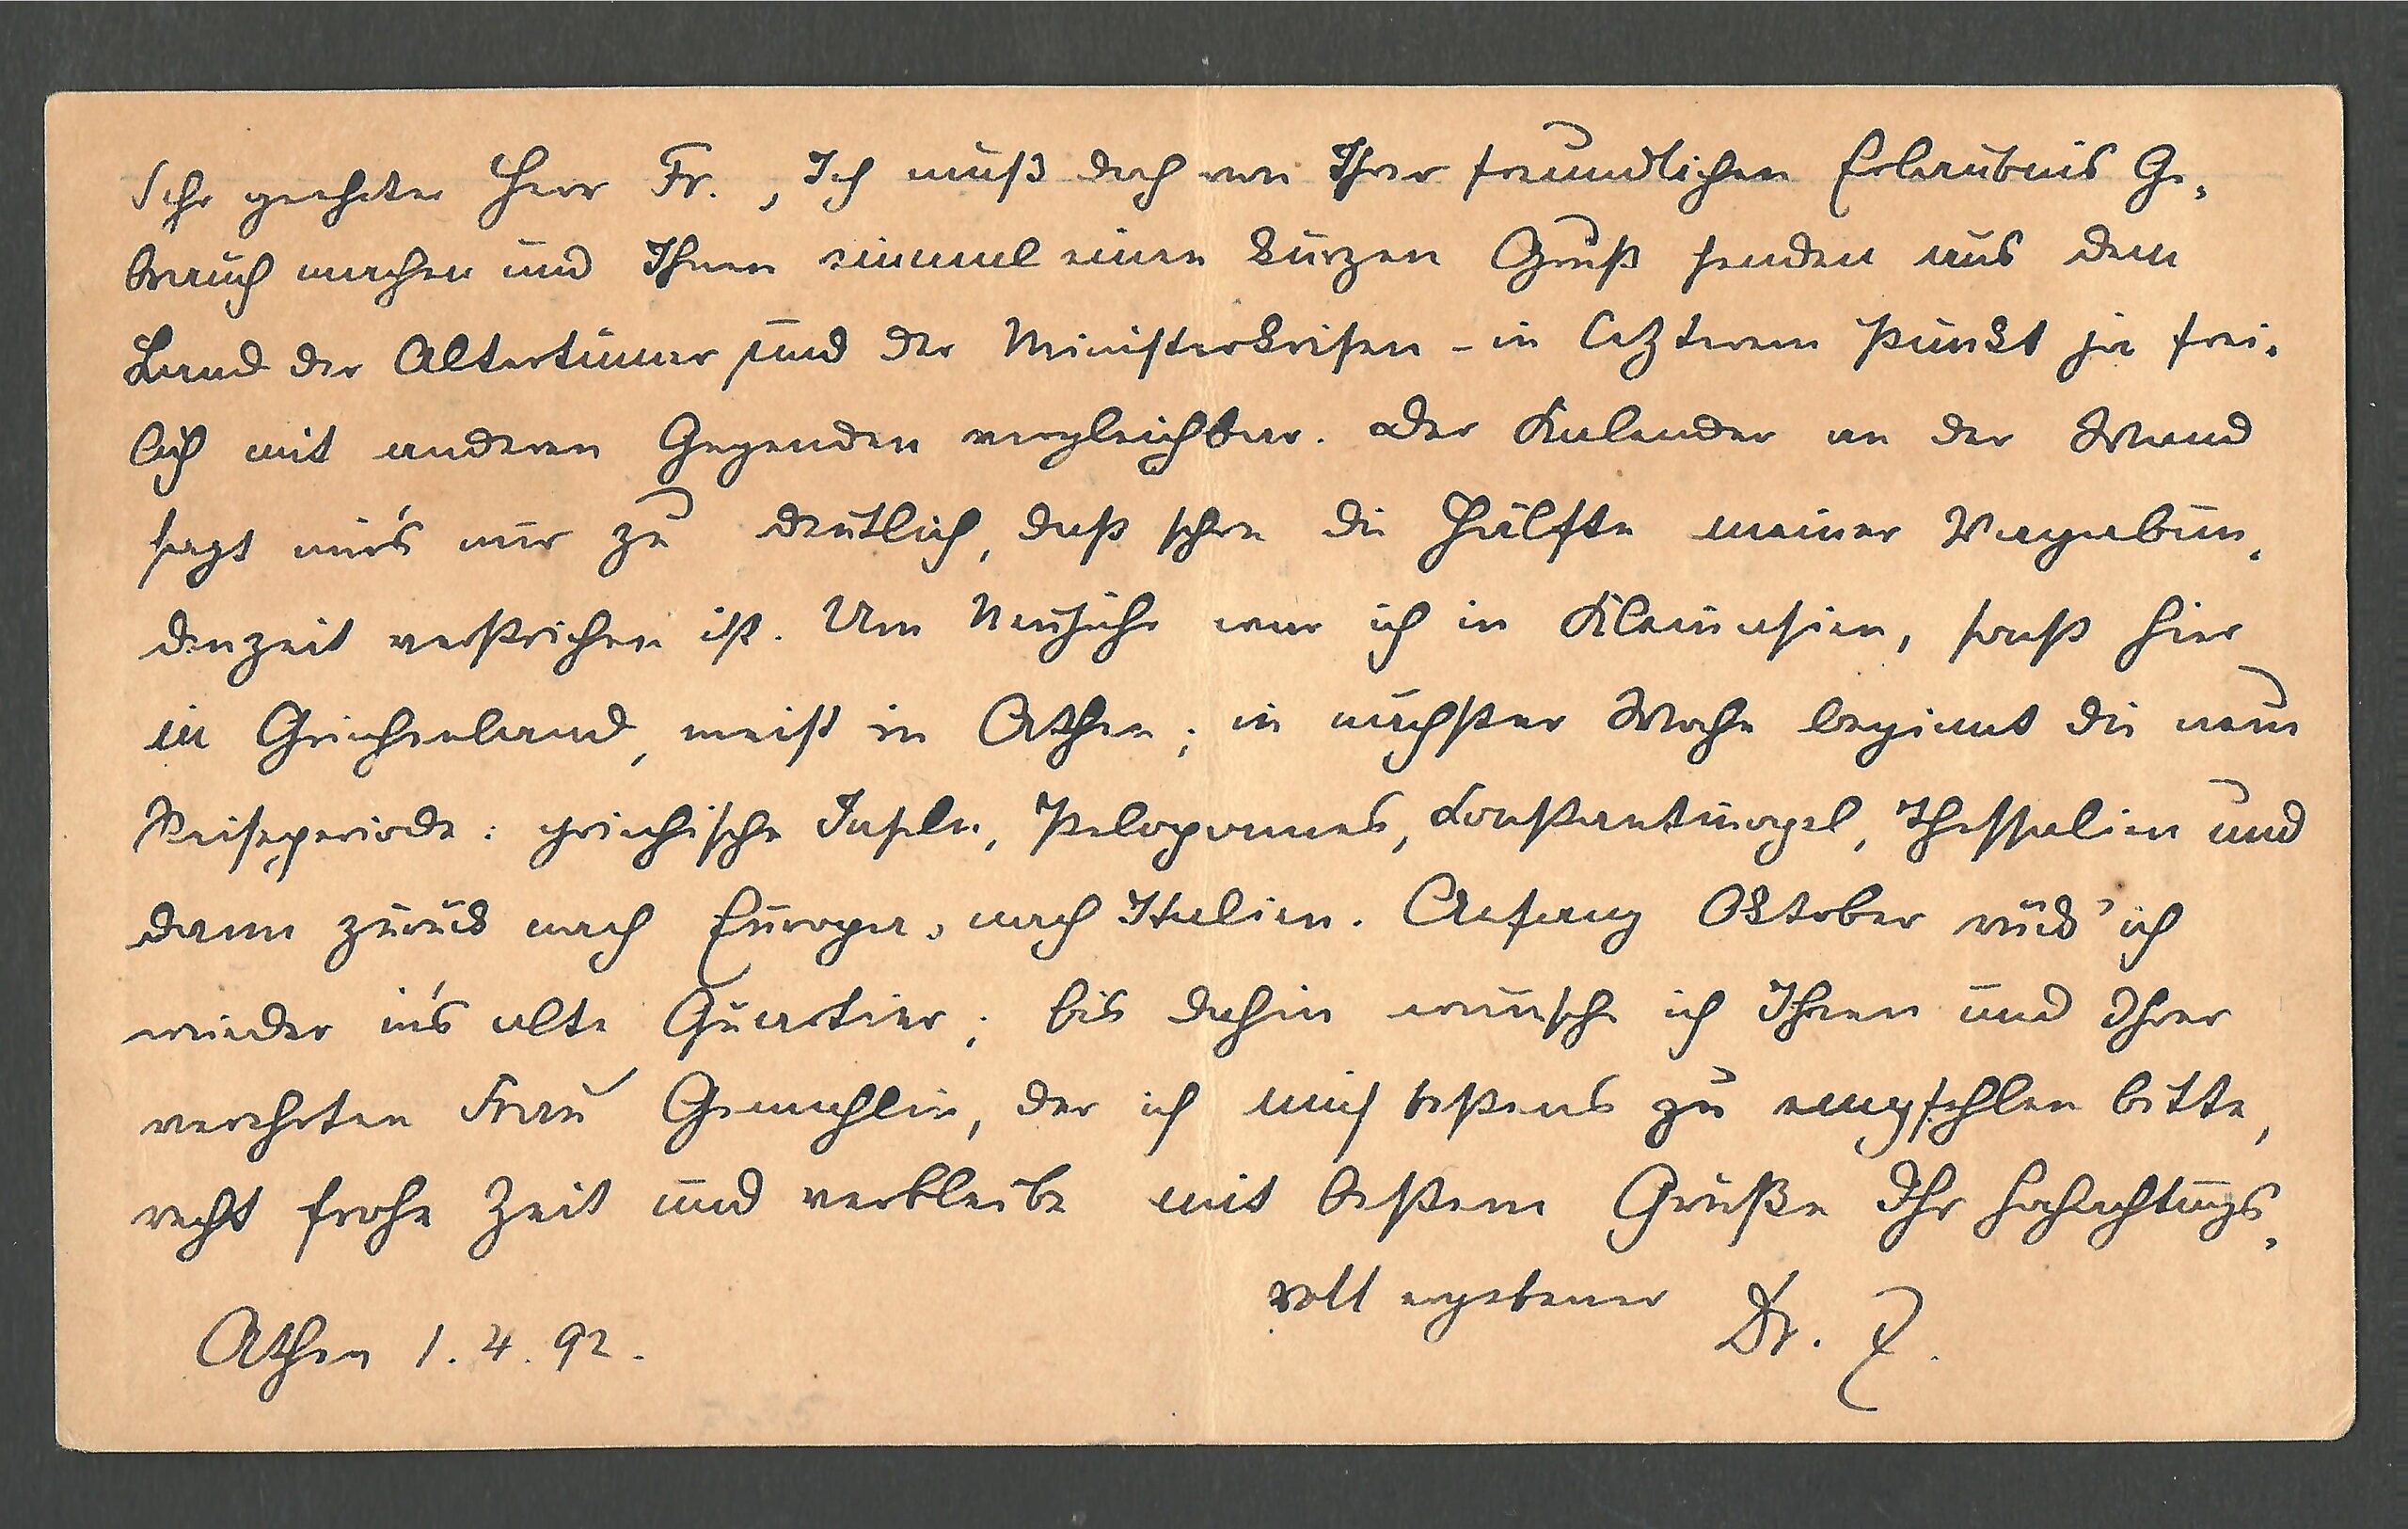 Sehr geehrter Herr Fr., Ich muß doch von Ihrer freundlichen Erlaubnis Ge-
brauch machen und Ihnen einmal einen kurzen Gruß senden aus dem
Land der Altertümer und der Ministerkrisen - in lezterem Punkt ja frei-
lich mit anderen Gegenden vergleichbar. Der Kalender an der Wand
sagt mir's nur zu deutlich, daß schon die Hälfte meiner Vagabun-
denzeit verstrichen ist. Um Neujahr war ich in Kleinasien, sonst hier
in Griechenland, meist in Athen; in nächster Woche beginnt die neue
Reiseperiode: griechische Inseln, Peloponnes, Konstantinopel, Thessalien und
dann zurück nach Europa, nach Italien. Anfang Oktober rück' ich
wieder in's alte Quartier; bis dahin wünsche ich Ihnen und Ihrer
verehrten Frau Gemahlin, der ich mich bestens zu empfehlen bitte,
recht frohe Zeit und verbleibe mit bestem Gruße Ihr hochachtungs-
voll ergebener Dr. Z.
Athen 1.4.92.